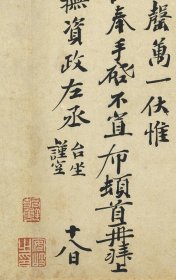 罄萬一伏惟
奉手啟不宣布頓首再拜上
撫資政左丞台坐
謹空
十八日